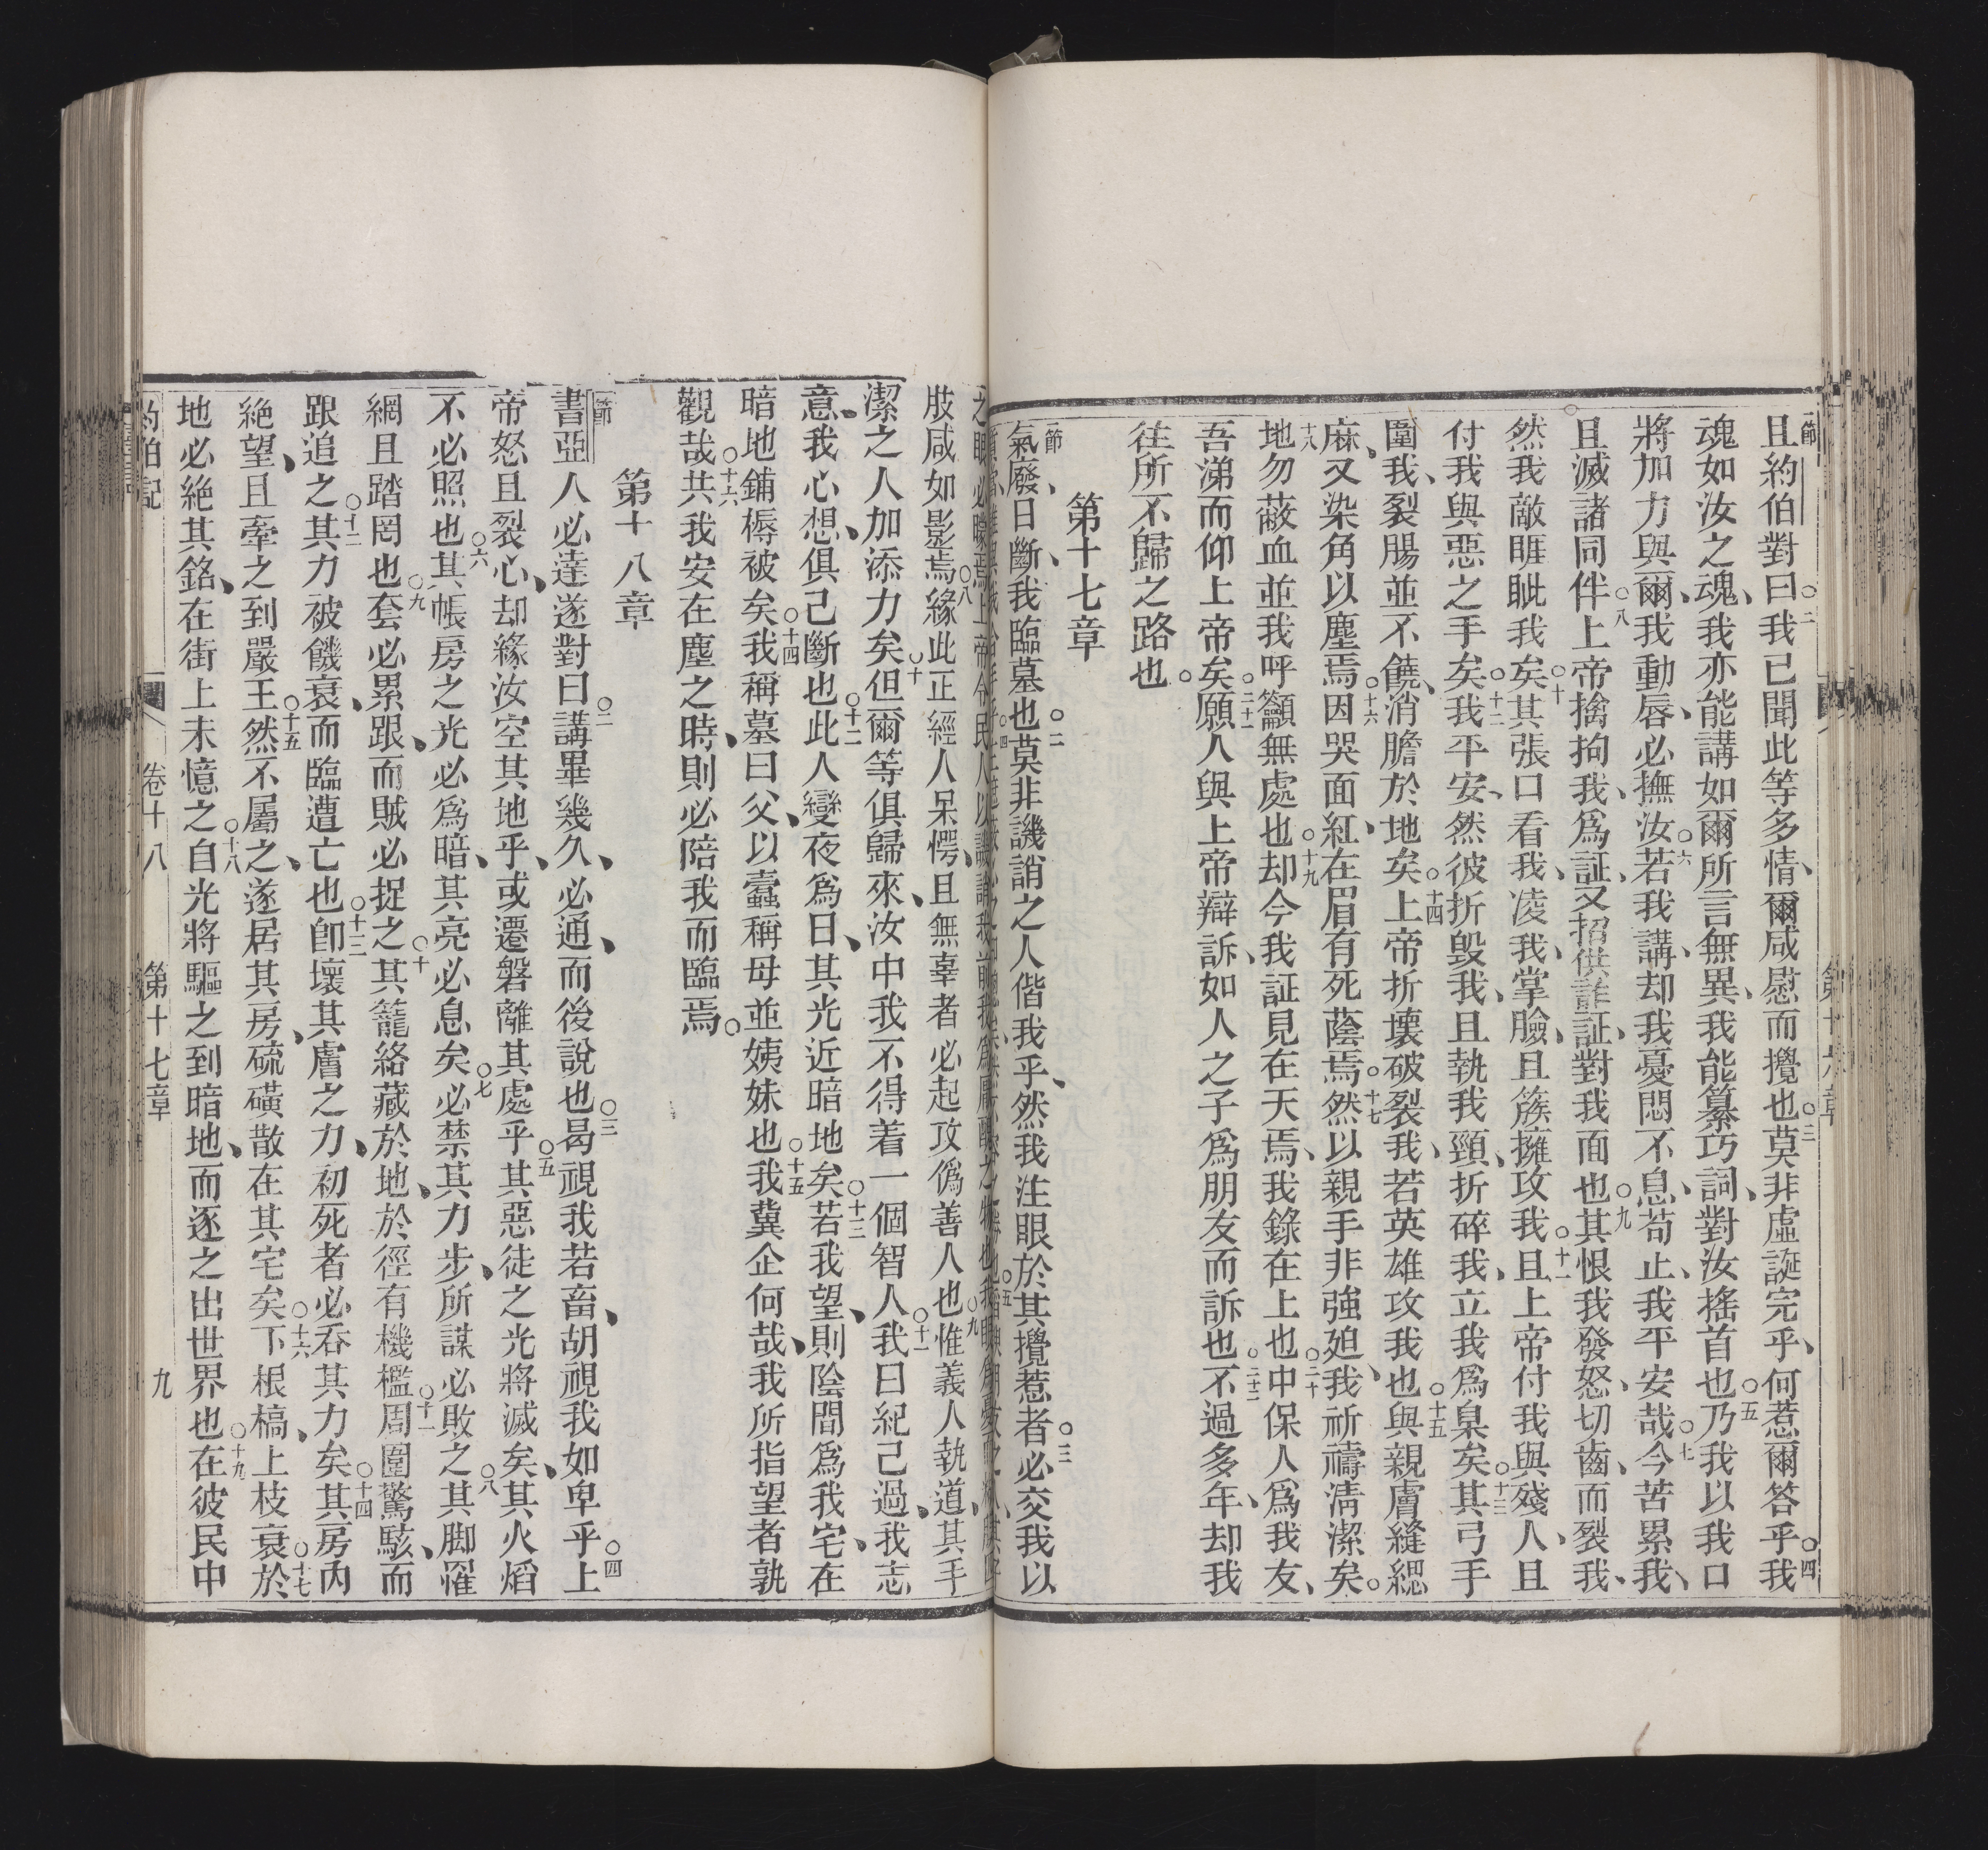 第十六章
一節且約伯對曰○二我已聞此等多情、爾咸慰而攪也○三莫非虛誕完乎、何惹爾答乎○四我
魂如汝之魂、我亦能講如爾所言無異、我能纂巧詞、對汝搖首也○五乃我以我口
將加力與爾、我動唇、必撫汝○六若我講、却我憂悶不息、苟止、我平安哉○七今苦累我、
且滅諸同伴○八上帝擒拘我、爲証、又招供誰証、對我面也○九其恨我發怒、切齒、而裂我、
然我敵睚眦我矣○十其張口看我、凌我、掌臉、且簇擁攻我○十一且上帝付我與殘人、且
付我與惡之手矣○十二我平安、然彼折毀我、且執我頸、折碎我、立我爲臬矣○十三其弓手
圍我、裂腸並不饒、消膽於地矣○十四上帝折壞破裂我、若英雄攻我也○十五與親膚縫緦
麻、又染角以塵焉○十六因哭面紅、在眉有死蔭焉○十七然以親手非強廹、我祈禱淸潔矣。
十八地勿蔽血並我呼籲無處也○十九却今我証見在天焉、我錄在上也○二十中保人爲我友、
吾涕而仰上帝矣○二十一願人與上帝辯訴、如人之子爲朋友而訴也○二十二不過多年、却我
徃所不歸之路也。
第十七章
一節氣廢、日斷、我臨墓也○二莫非譏誚之人偕我乎、然我注眼於其攪惹者○三必交我以
之眼必矇焉
肢咸如影焉○八緣此正經人呆愕、且無辜者必起攻僞善人也○九惟義人執道、其手
潔之人加添力矣○十但爾等俱歸來、汝中我不得着一個智人○十一我日紀己過、我志
意、我心想、俱己斷也○十二此人變夜爲日、其光近暗地矣○十三若我望、則陰間爲我宅、在
暗地鋪褥被矣○十四我稱墓曰父、以蠹稱母並姨妹也○十五我冀企何哉、我所指望者孰
觀哉○十六共我安在塵之時、則必陪我而臨焉。
第十八章
一節書亞人必達遂對曰○二講畢幾久、必通、而後說也○三曷視我若畜、胡視我如卑乎○四上
帝怒且裂心、却緣汝空其地乎、或遷磐離其處乎○五其惡徒之光將滅矣、其火熖
不必照也○六其帳房之光必爲暗、其亮必息矣○七必禁其力步、所謀必敗之○八其脚罹
網且踏罔也○九套必累跟、而賊必捉之○十其籠絡藏於地、於徑有機檻○十一周圍驚駭、而
跟追之○十二其力被饑衰、而臨遭亡也○十三卽壞其膚之力、初死者必吞其力矣○十四其房內
絕望、且牽之到嚴王○十五然不屬之、遂居其房、硫磺散在其宅矣○十六下根槁、上枝衰○十七於
地必絕其銘、在街上未憶之○十八自光將驅之到暗地、而逐之出世界也○十九在彼民中
約伯記　卷十八　第十七章　九